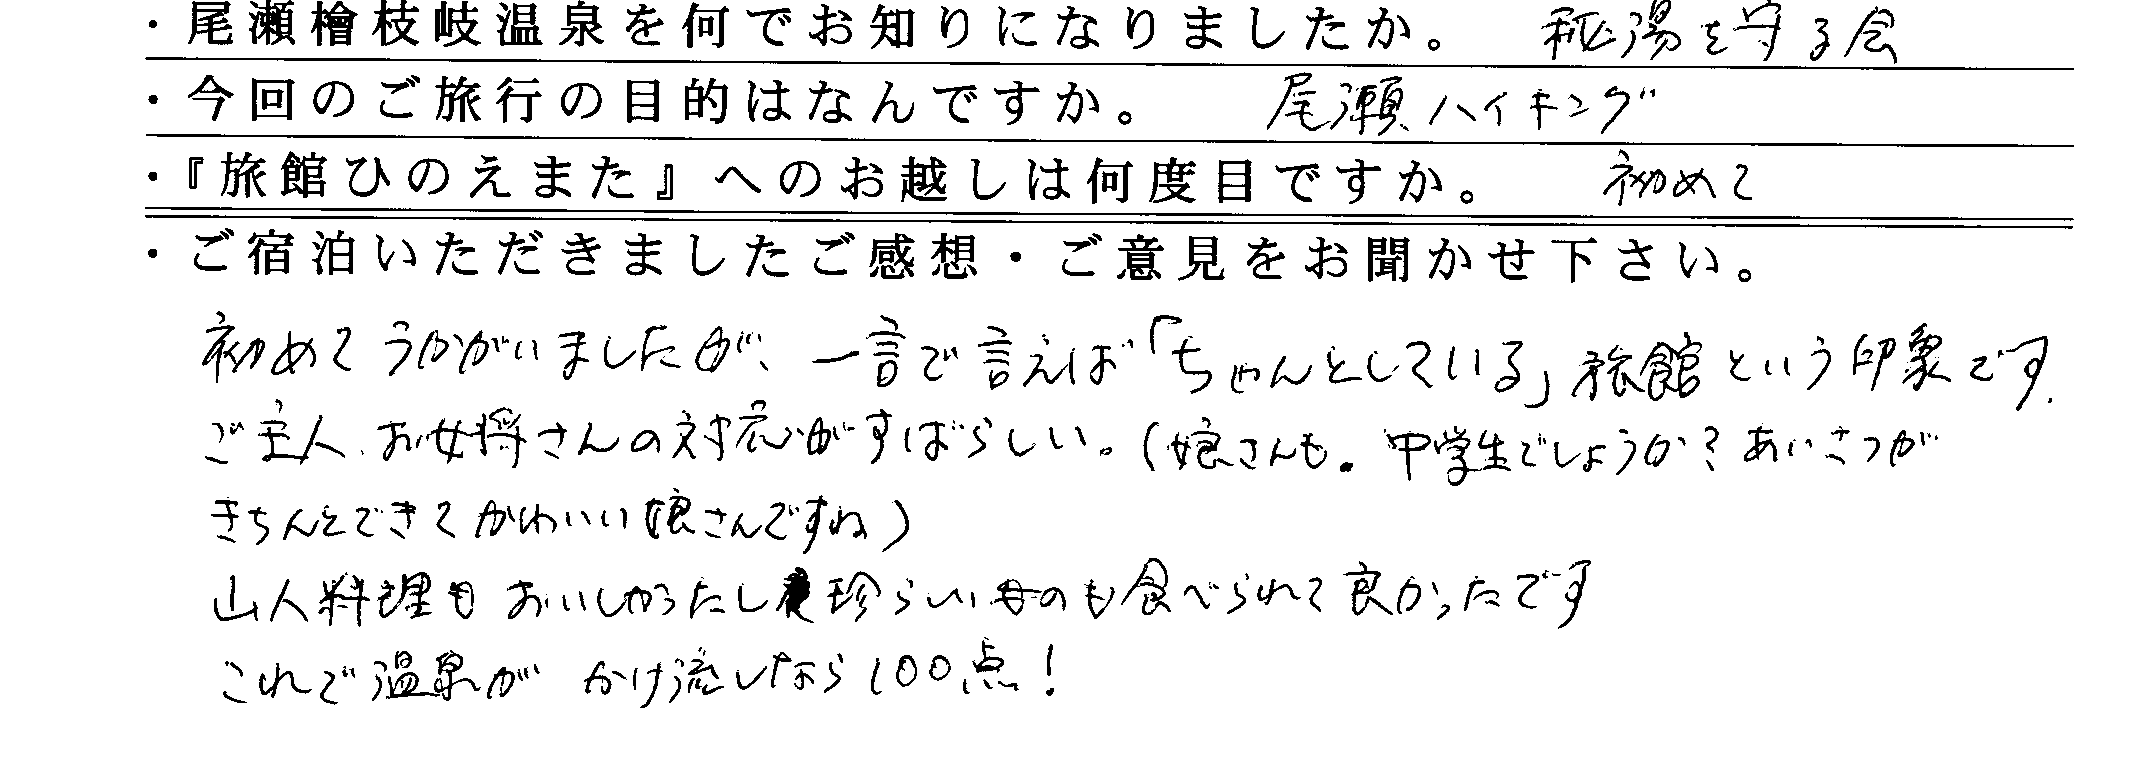 ・尾瀬檜枝岐温泉を何でお知りになりましたか。 秘湯を守る会
・今回のご旅行の目的はなんですか。 尾瀬ハイキング
・『旅館ひのえまた』へのお越しは何度目ですか。 初めて
・ご宿泊いただきましたご感想・ご意見をお聞かせ下さい。
初めてうかがいましたが、一言で言えば「ちゃんとしている」旅館という印象です.
ご主人、お女将さんの対応がすばらしい。(娘さんも。中学生でしょうか?あいさつが
きちんとできてかわいい娘さんですね)
山人料理もおいしかったし珍らしいものも食べられて良かったです
これで温泉が かけ流しなら100点!